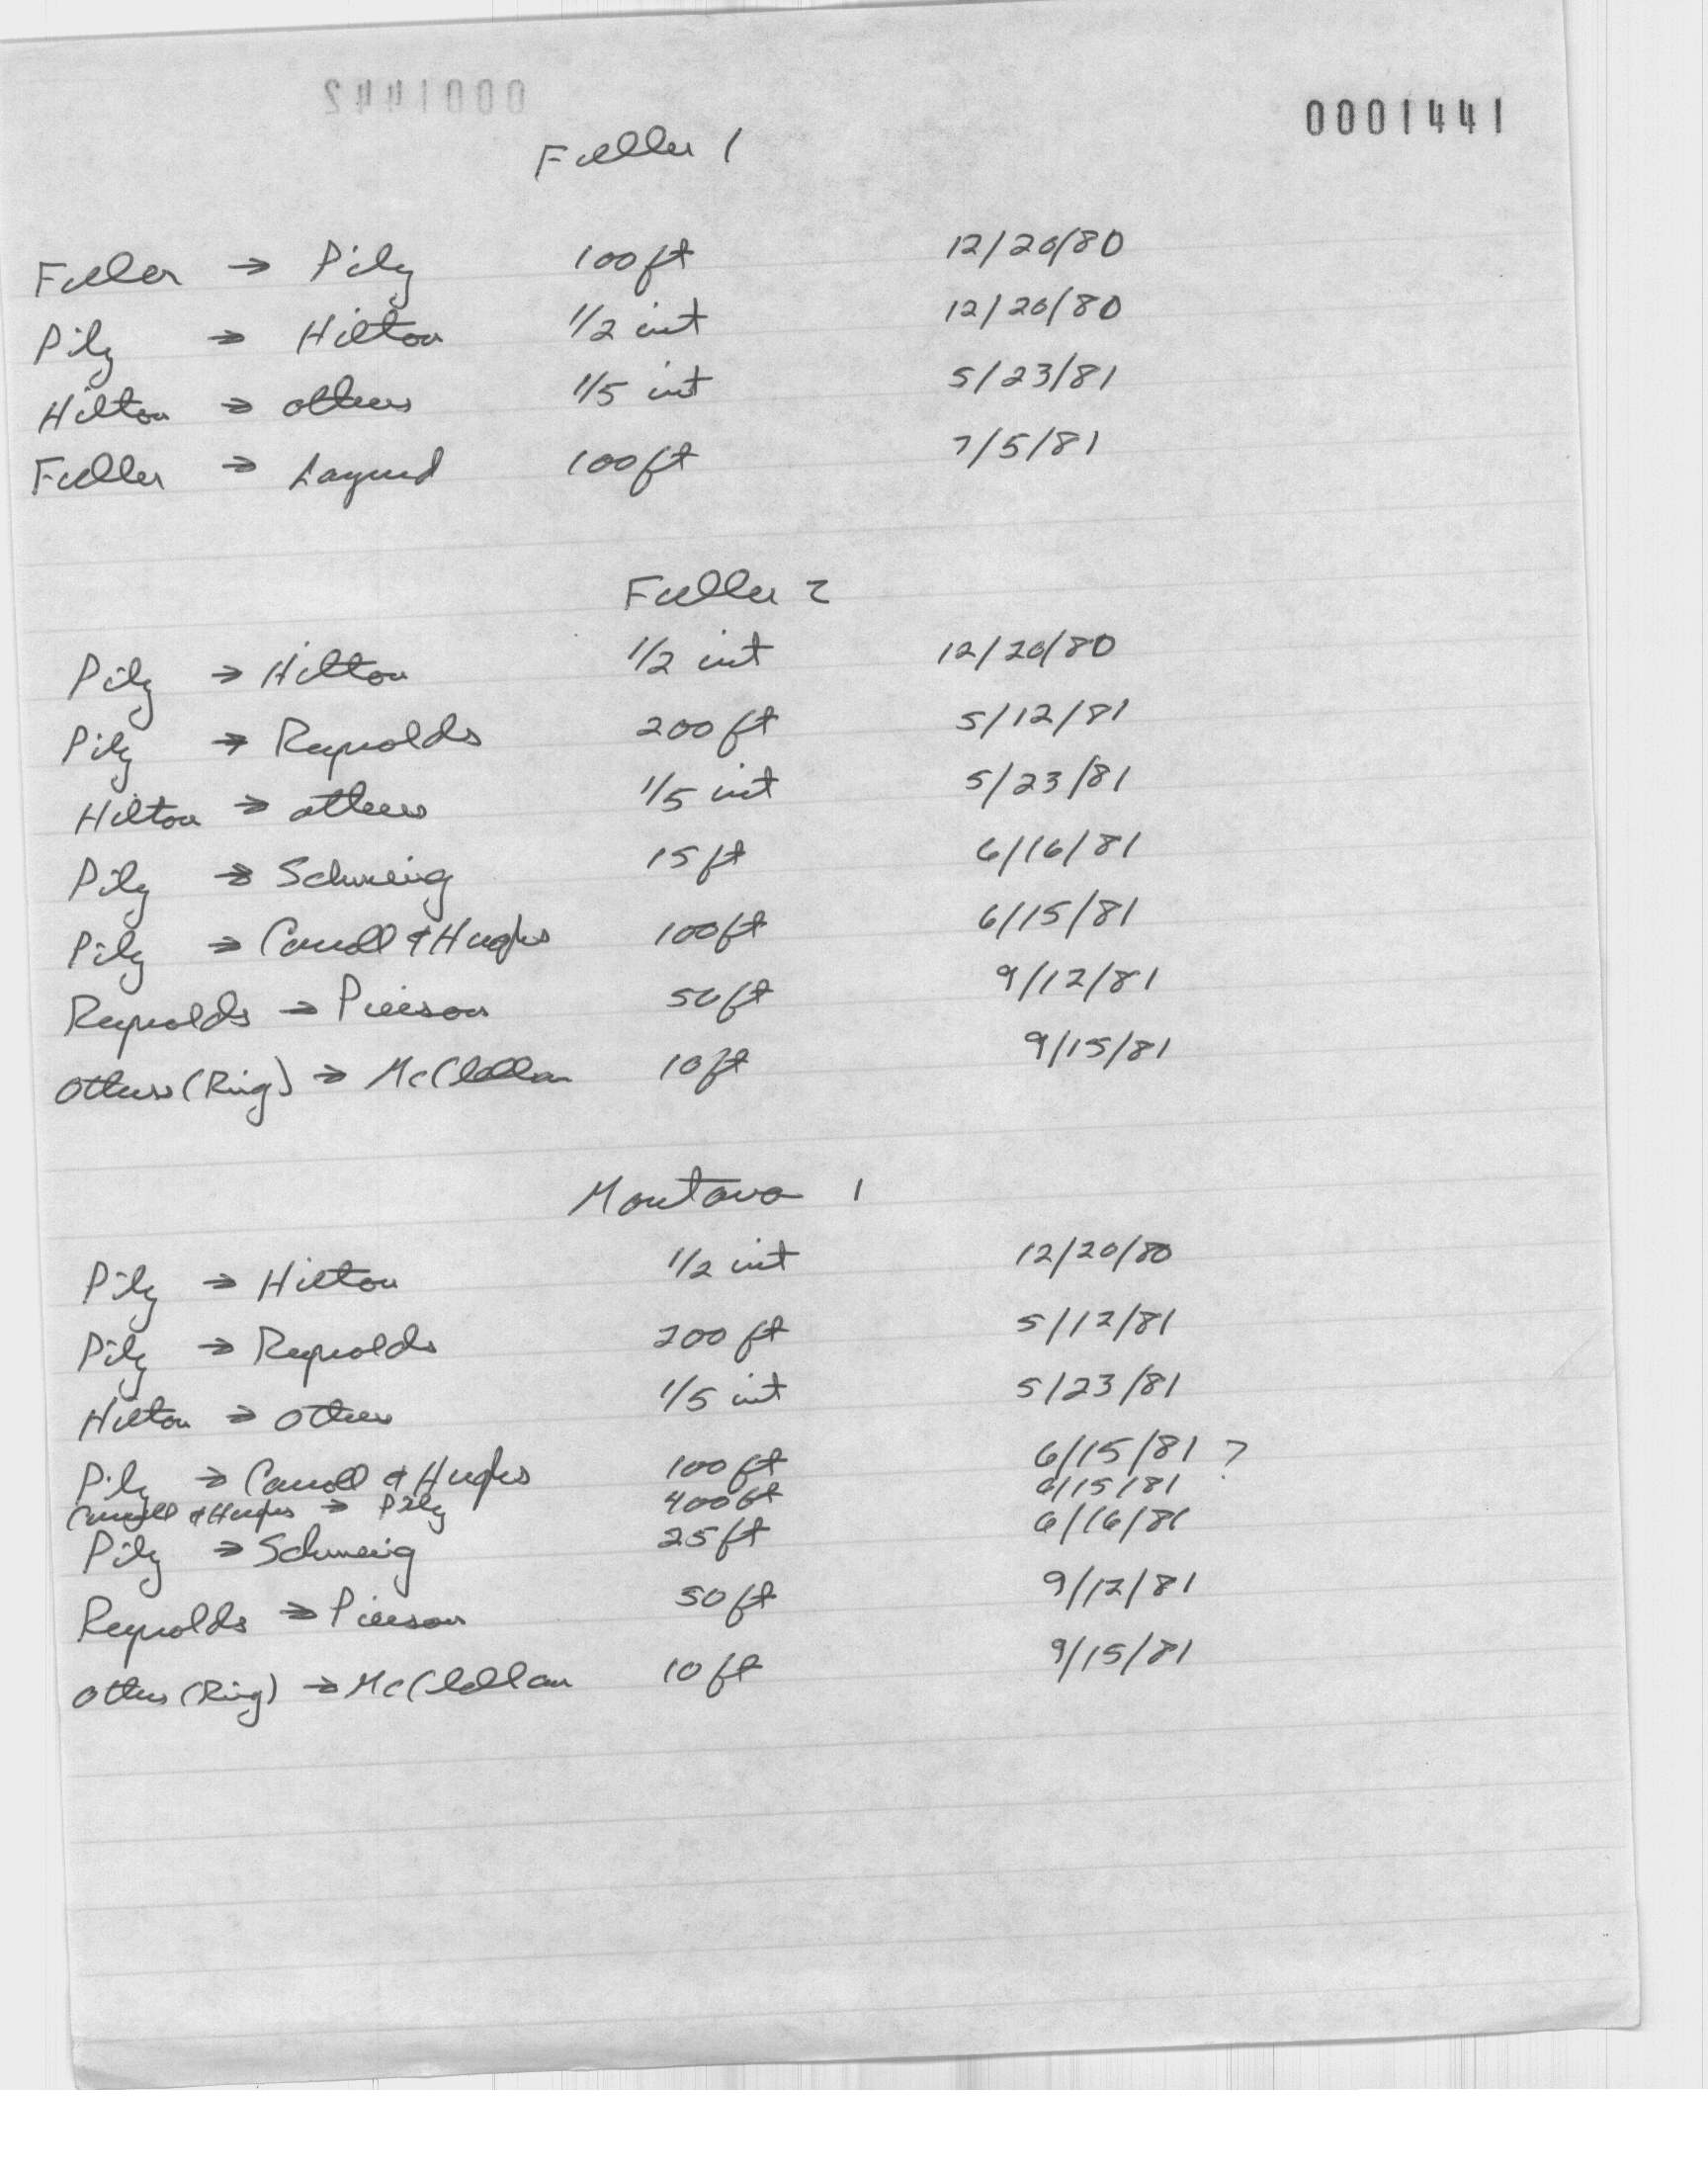 0001442
0001441
Fuller 1
Fuller → Pilz 100 ft 12/20/80
Pilz → Hilton 1/2 int 12/20/80
Hilton → others 1/5 int 5/23/81
Fuller → 100 ft 7/5/81
Fuller 2
Pilz → Hilton 1/2 int 12/20/80
Pilz → Reynolds 200 ft 5/12/81
Hilton → others 1/5 int 5/23/81
Pilz → 15 ft 6/16/81
Pilz → Carroll & Hughes 100 ft 6/15/81
Reynolds → Pierson 50 ft 9/12/81
Others (Ring) → McClellan 10 ft 9/15/81
Montana 1
Pilz → Hilton 1/2 int 12/20/80
Pilz → Reynolds 200 ft 5/12/81
Hilton → others 1/5 int 5/23/81
Pilz → Carroll & Hughes 100 ft 6/15/81 ?
Carroll & Hughes → Pilz 400 ft 6/15/81
Pilz → 25 ft 6/16/81
Reynolds → Pierson 50 ft 9/12/81
Others (Ring) → McClellan 10 ft 9/15/81